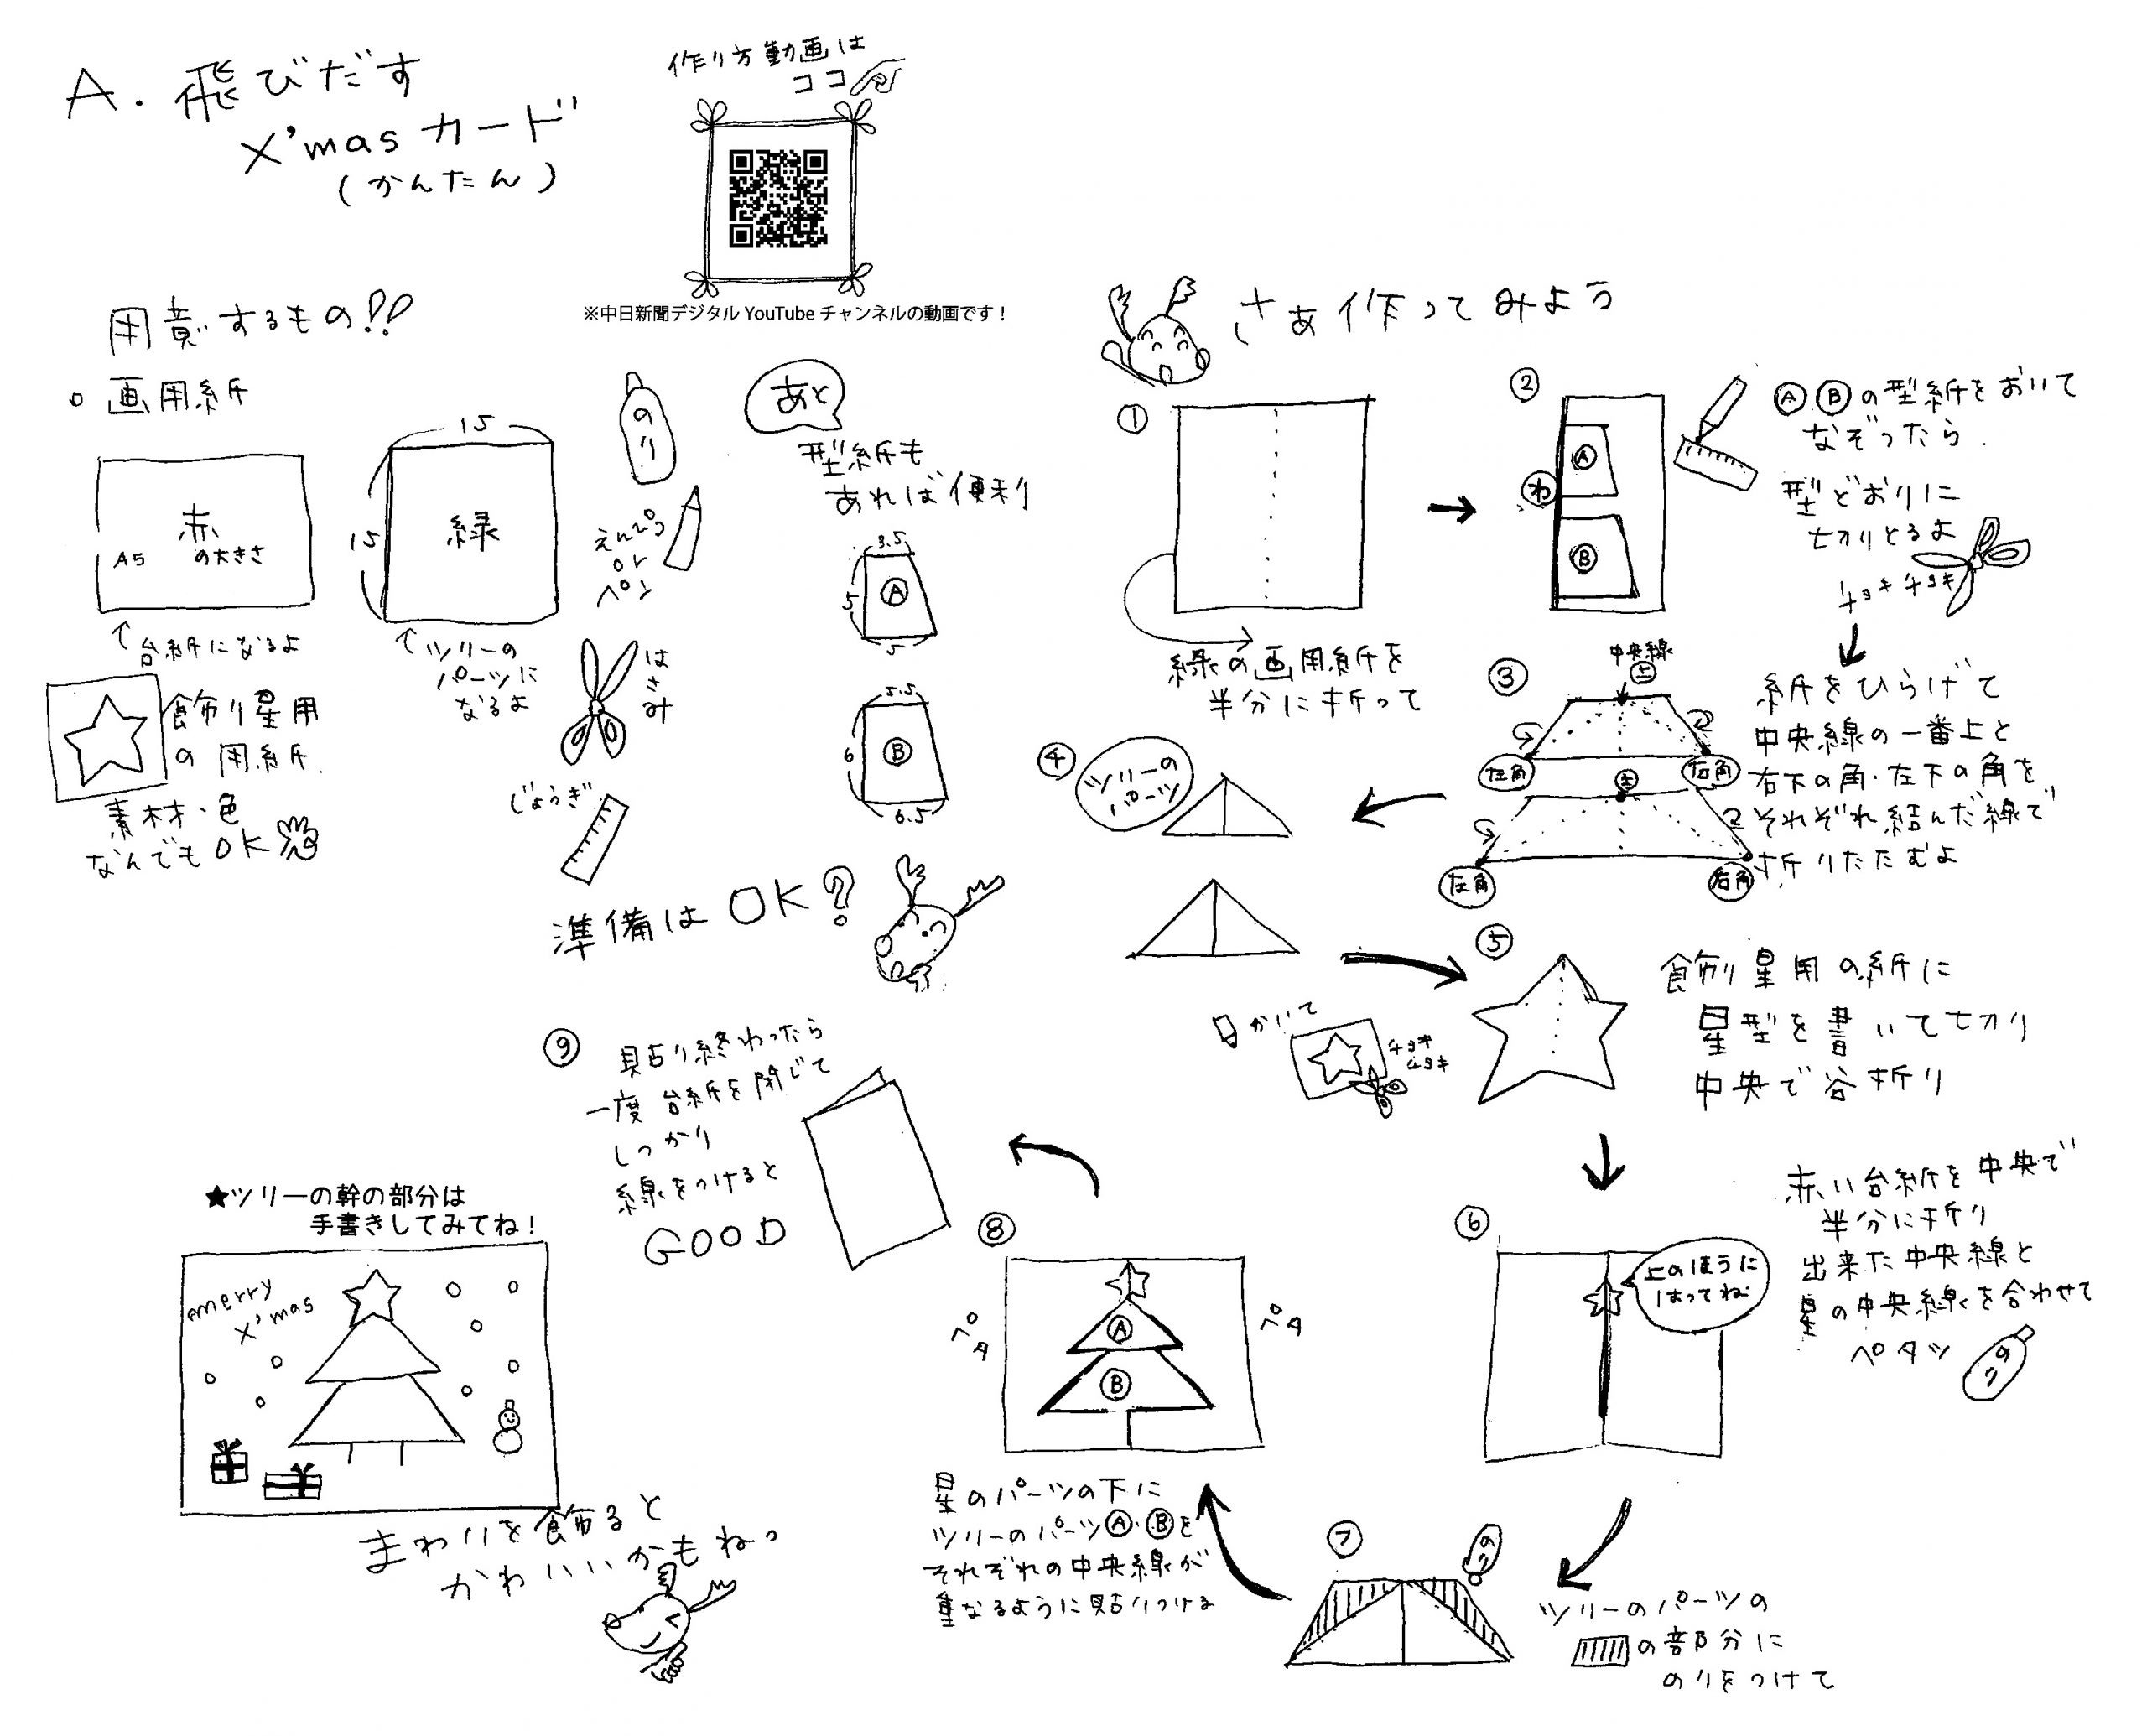 A. 飛びだす
X'mas カード
(かんたん)
作り方動画は
ココ
※中日新聞デジタル YouTube チャンネルの動画です！
用意するもの!!
画用紙
赤
A5 の大きさ
台紙になるよ
15
15
緑
ツリーの
パーツに
なるよ
のり
えんぴつ
or
ペン
はさみ
じょうぎ
飾り星用
の用紙
素材・色
なんでもOK
あと
型紙も
あれば便利
3.5
5
A
5
5.5
6
B
6.5
準備は OK?
さあ作ってみよう
①
緑の画用紙を
半分に折って
②
わ
A
B
ⒶⒷの型紙をおいて
なぞったら
型どおりに
切りとるよ
チョキチョキ
③
中央線
上
左角
右角
上
左角
右角
紙をひらげて
中央線の一番上と
右下の角・左下の角を
それぞれ結んだ線で
折りたたむよ
④
ツリーの
パーツ
⑤
かいて
チョキ
チョキ
飾り星用の紙に
星型を書いて切り
中央で谷折り
⑥
上のほうに
はってね
赤い台紙を中央で
半分に折り
出来た中央線と
星の中央線を合わせて
ペタッ
のり
⑦
のり
ツリーのパーツの
の部分に
のりをつけて
⑧
ペタ
A
B
ペタ
星のパーツの下に
ツリーのパーツⒶ・Ⓑを
それぞれの中央線が
重なるように貼りつける
⑨
貼り終わったら
一度台紙を閉じて
しっかり
線をつけると
GOOD
★ツリーの幹の部分は
手書きしてみてね！
merry
X'mas
まわりを飾ると
かわいいかもねっ